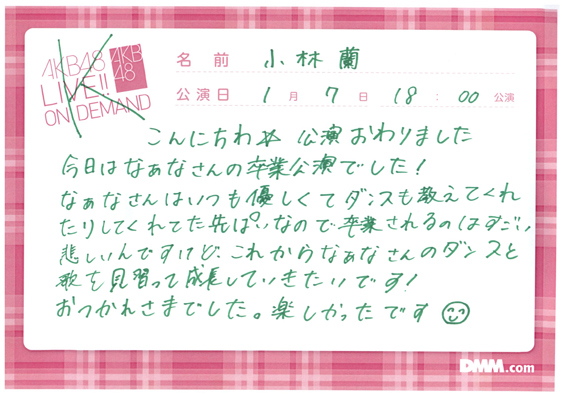 AKB48
LIVE!!
ON DEMAND
AKB
48
名前 小林蘭
公演日 1月7日 18:00公演
こんにちわ☆ 公演おわりました
今日はなぁなさんの卒業公演でした!
なぁなさんはいつも優しくてダンスも教えてくれ
たりしてくれてた先ぱいなので卒業されるのはすごい
悲しいんですけど、これからなぁなさんのダンスと
歌を見習って成長していきたいです!
おつかれさまでした。楽しかったです
DMM.com